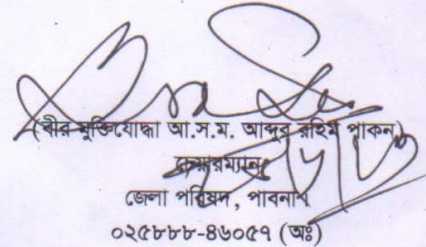 (বীর মুক্তিযোদ্ধা আ.স.ম. আব্দুর রহিম পাকন)
চেয়ারম্যান
জেলা পরিষদ, পাবনা।
০২৫৮৮৮-৪৬০৫৭ (অঃ)